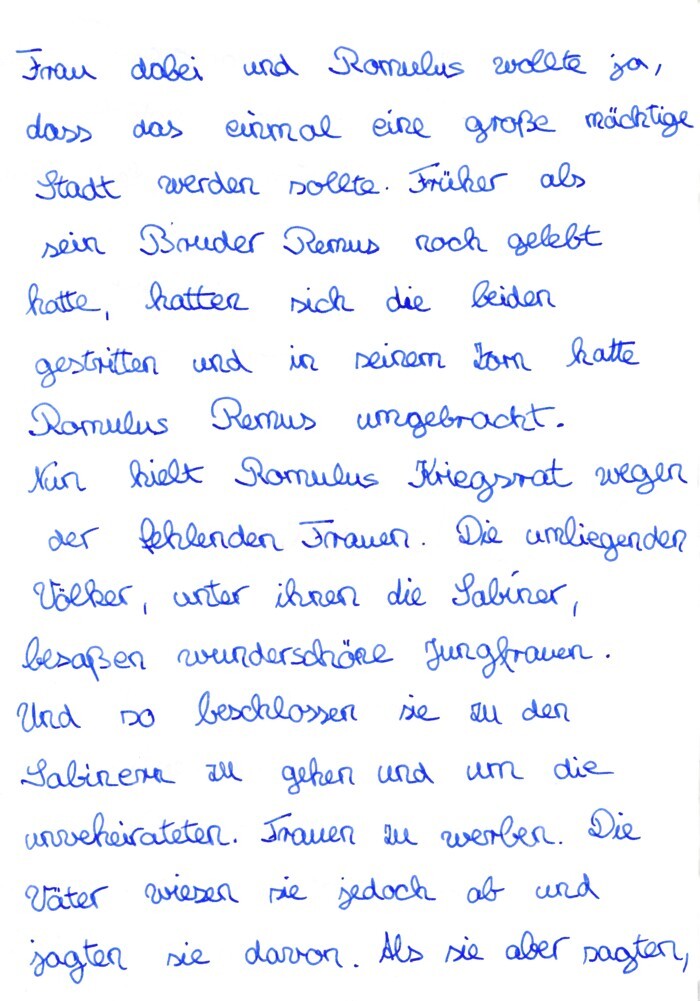 Frau dabei und Romulus wollte ja,
dass das einmal eine große mächtige
Stadt werden sollte. Früher als
sein Bruder Remus noch gelebt
hatte, hatten sich die beiden
gestritten und in seinem Zorn hatte
Romulus Remus umgebracht.
Nun hielt Romulus Kriegsrat wegen
der fehlenden Frauen. Die umliegenden
Völker, unter ihnen die Sabiner,
besaßen wunderschöne Jungfrauen.
Und so beschlossen sie zu den
Sabinern zu gehen und um die
unveheirateten. Frauen zu werben. Die
Väter wiesen sie jedoch ab und
jagten sie davon. Als sie aber sagten,